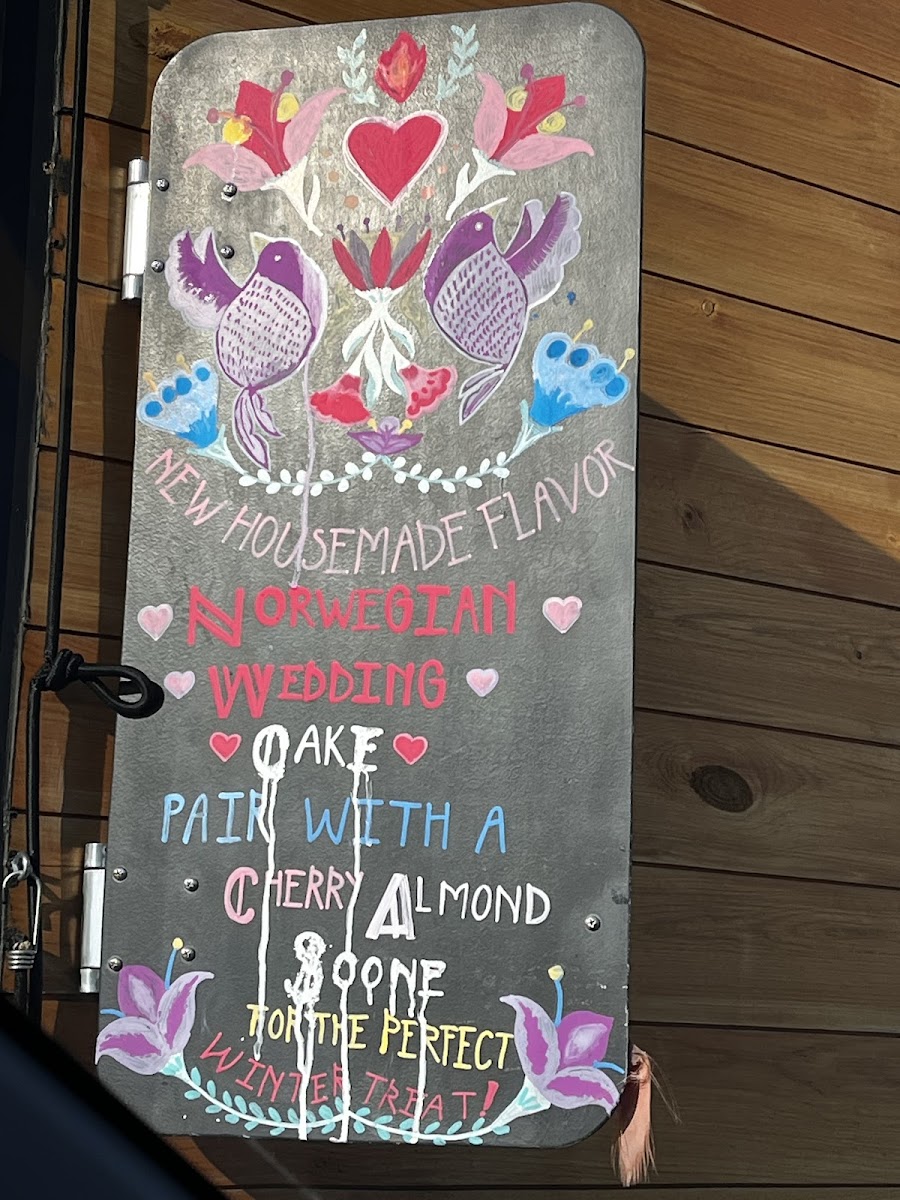 NEW HOUSEMADE FLAVOR
NORWEGIAN
WEDDING
CAKE
PAIR WITH A
CHERRY ALMOND
SCONE
FOR THE PERFECT
WINTER TREAT!